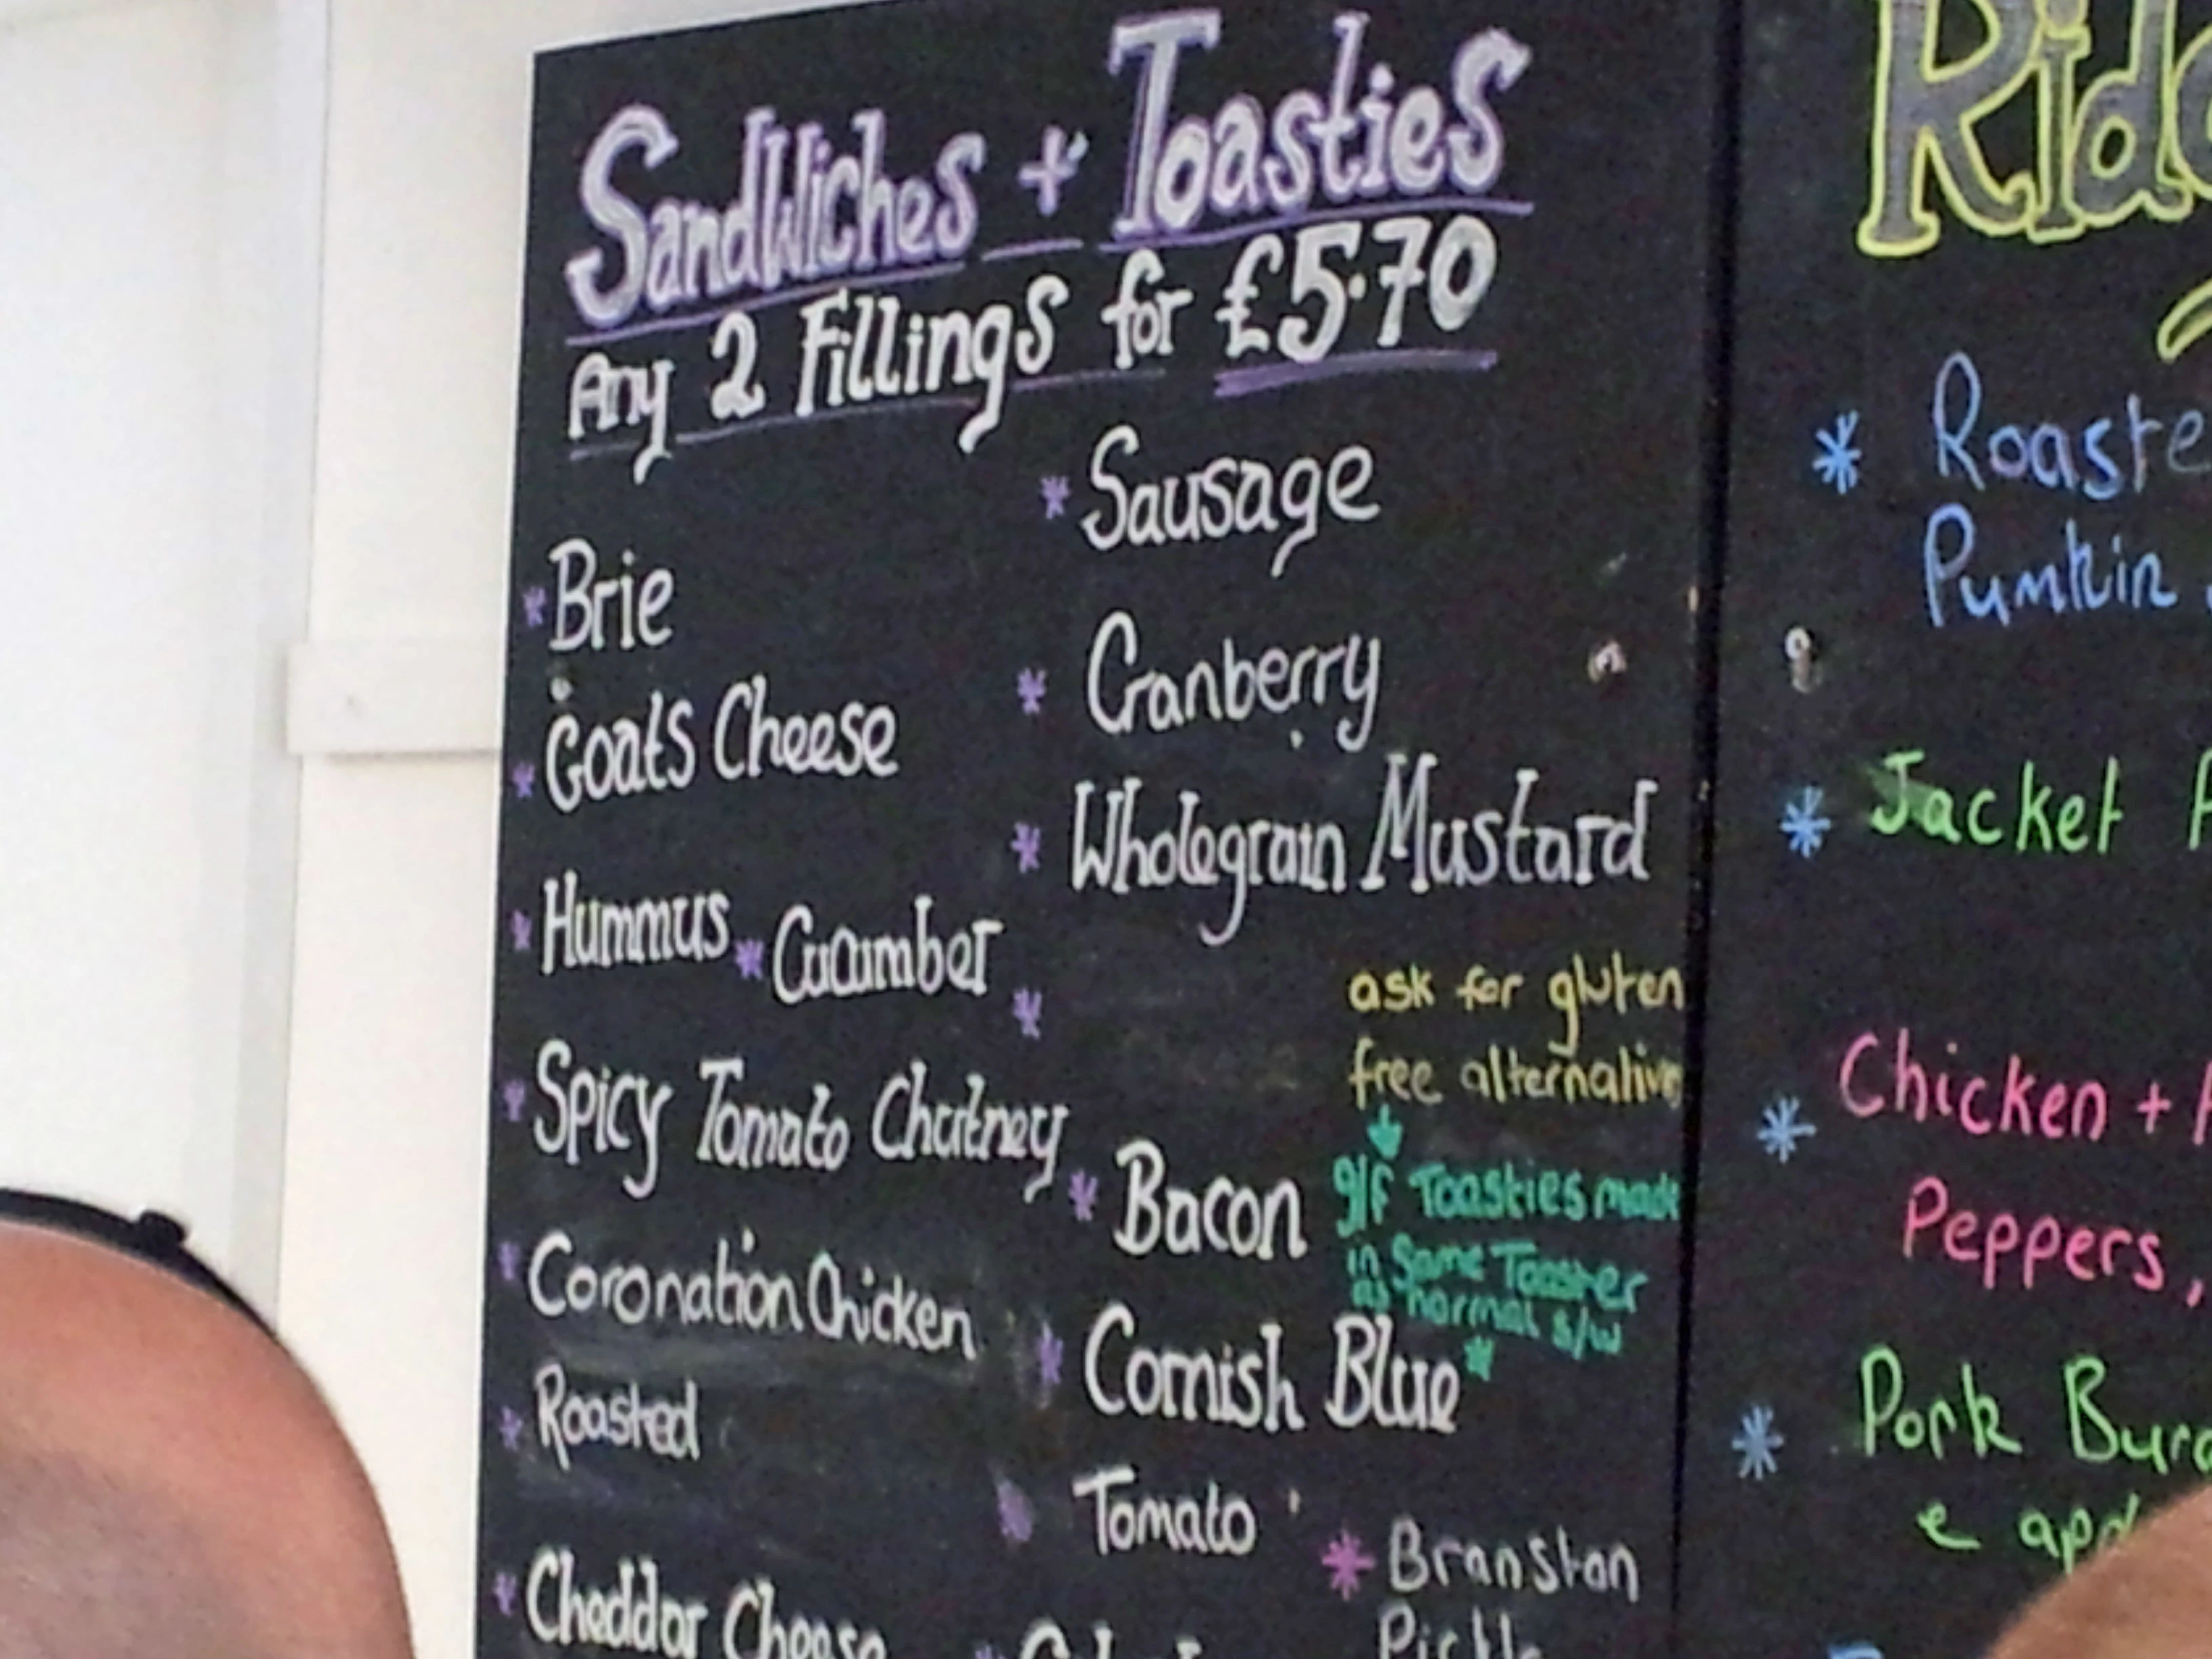 Sandwiches + Toasties
Any 2 Fillings for £5.70
* Sausage
* Brie
* Cranberry
* Goats Cheese
* Wholegrain Mustard
* Hummus * Cucumber
*
ask for gluten
free alternative
* Spicy Tomato Chutney
* Bacon
g/f Toasties made
in Same Toaster
as normal s/w
* Coronation Chicken
* Cornish Blue *
* Roasted
Tomato
* Branston
Pickle
* Cheddar Cheese
* Roaste
Pumkin
* Jacket
* Chicken +
Peppers,
* Pork Bur
e